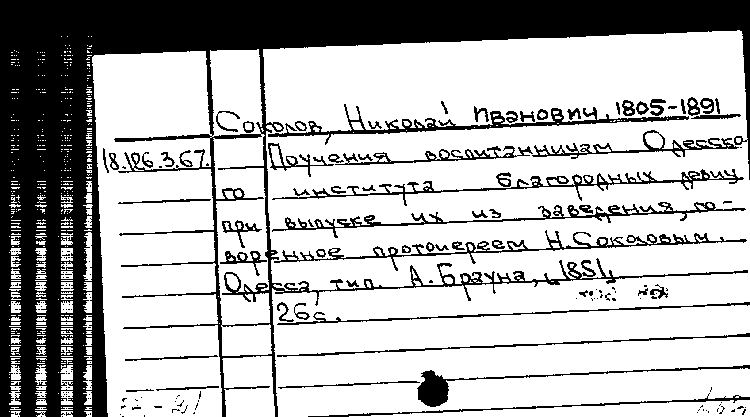 Соколов, Николай Иванович, 1805-1891
18.126.3.67. Поучения воспитанницам Одесско
го института благородных девиц
при выпуске их из заведения, го-
воренное протоиереем Н. Соколовым.
Одесса, тип. А. Брауна, [1851]
26 с.